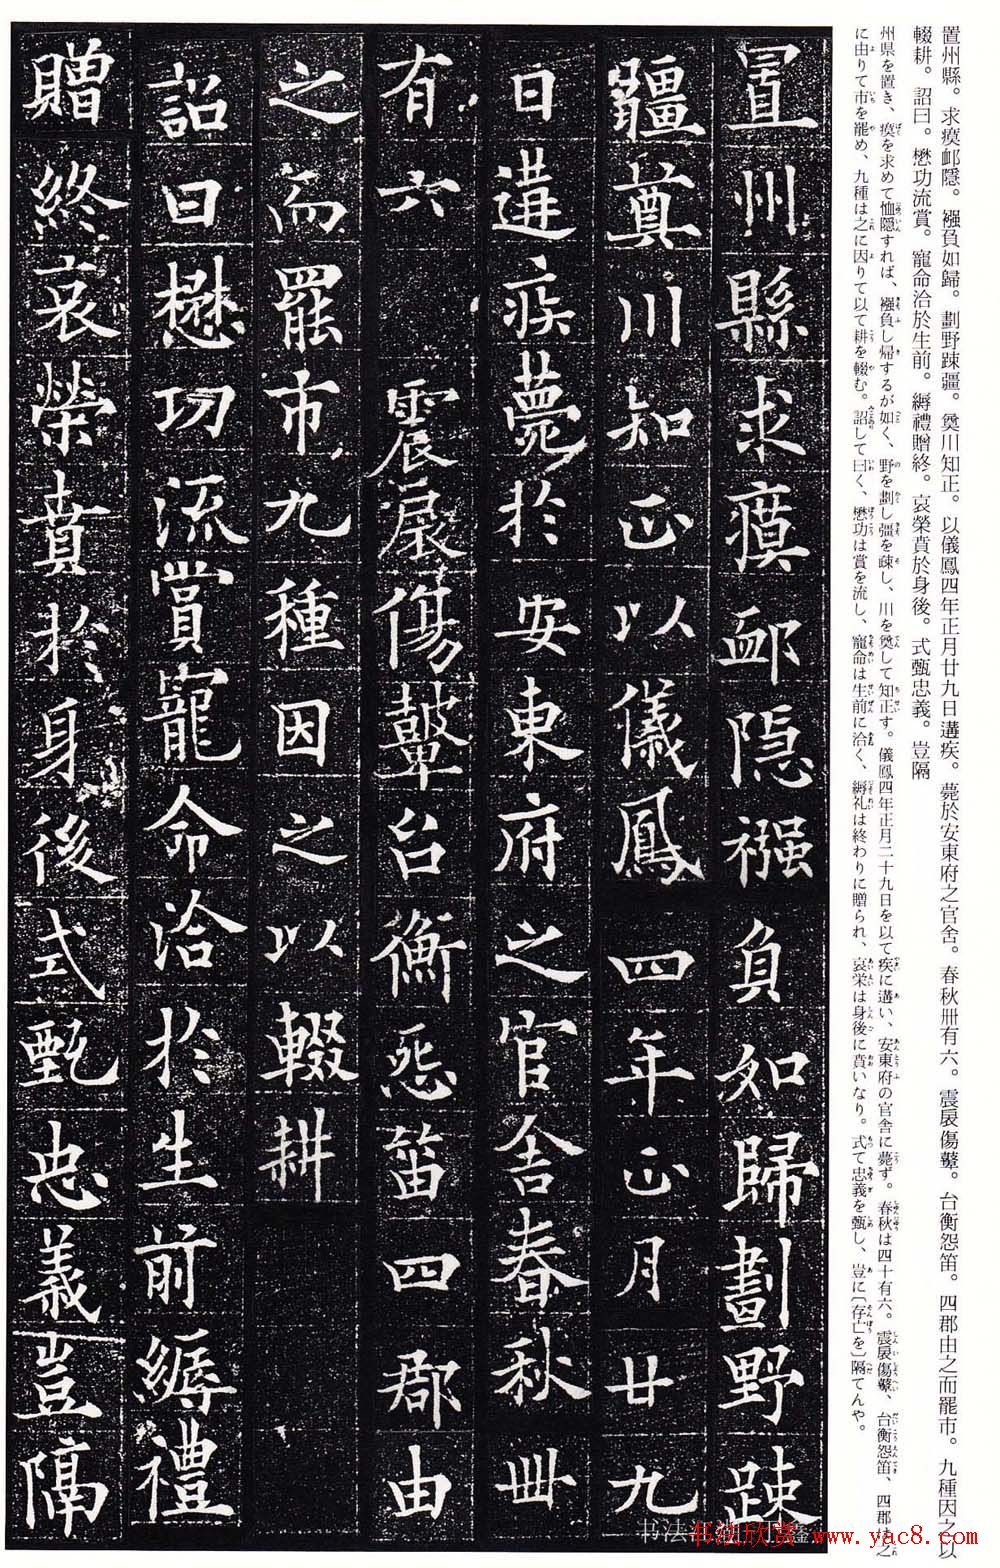 置州縣。求瘼衈隱。襁負如歸。劃野踈疆。奠川知正。以儀鳳四年正月廿九日遘疾。薨於安東府之官舍。春秋卌有六。震扆傷鼙。台衡怨笛。四郡由之而罷市。九種因之以
輟耕。詔曰。懋功流賞。寵命洽於生前。縟禮贈終。哀榮賁於身後。式甄忠義。豈隔
州県を置き、瘼を求めて恤隠すれば、襁負し帰するが如く、野を劃し疆を疎し、川を奠して知正す。儀鳳四年正月二十九日を以て疾に遘い、安東府の官舎に薨ず。春秋は四十有六。震扆傷鼙、台衡怨笛、四郡は之
に由りて市を罷め、九種は之に因りて以て耕を輟む。詔して曰く、懋功は賞を流し、寵命は生前に洽く、縟礼は終わりに贈られ、哀栄は身後に賁いなり。式て忠義を甄し、豈に〔存亡を〕隔てんや。
置州縣求瘼衈隠襁負如歸劃野踈
疆奠川知正以儀鳳四年正月廿九
日遘疾薨於安東府之官舍春秋卌
有六震扆傷鼙台衡怨笛四郡由
之而罷市九種因之以輟耕
詔曰懋功流賞寵命洽於生前縟禮
贈終哀榮賁於身後式甄忠義豈隔
书法欣赏 www.yac8.com